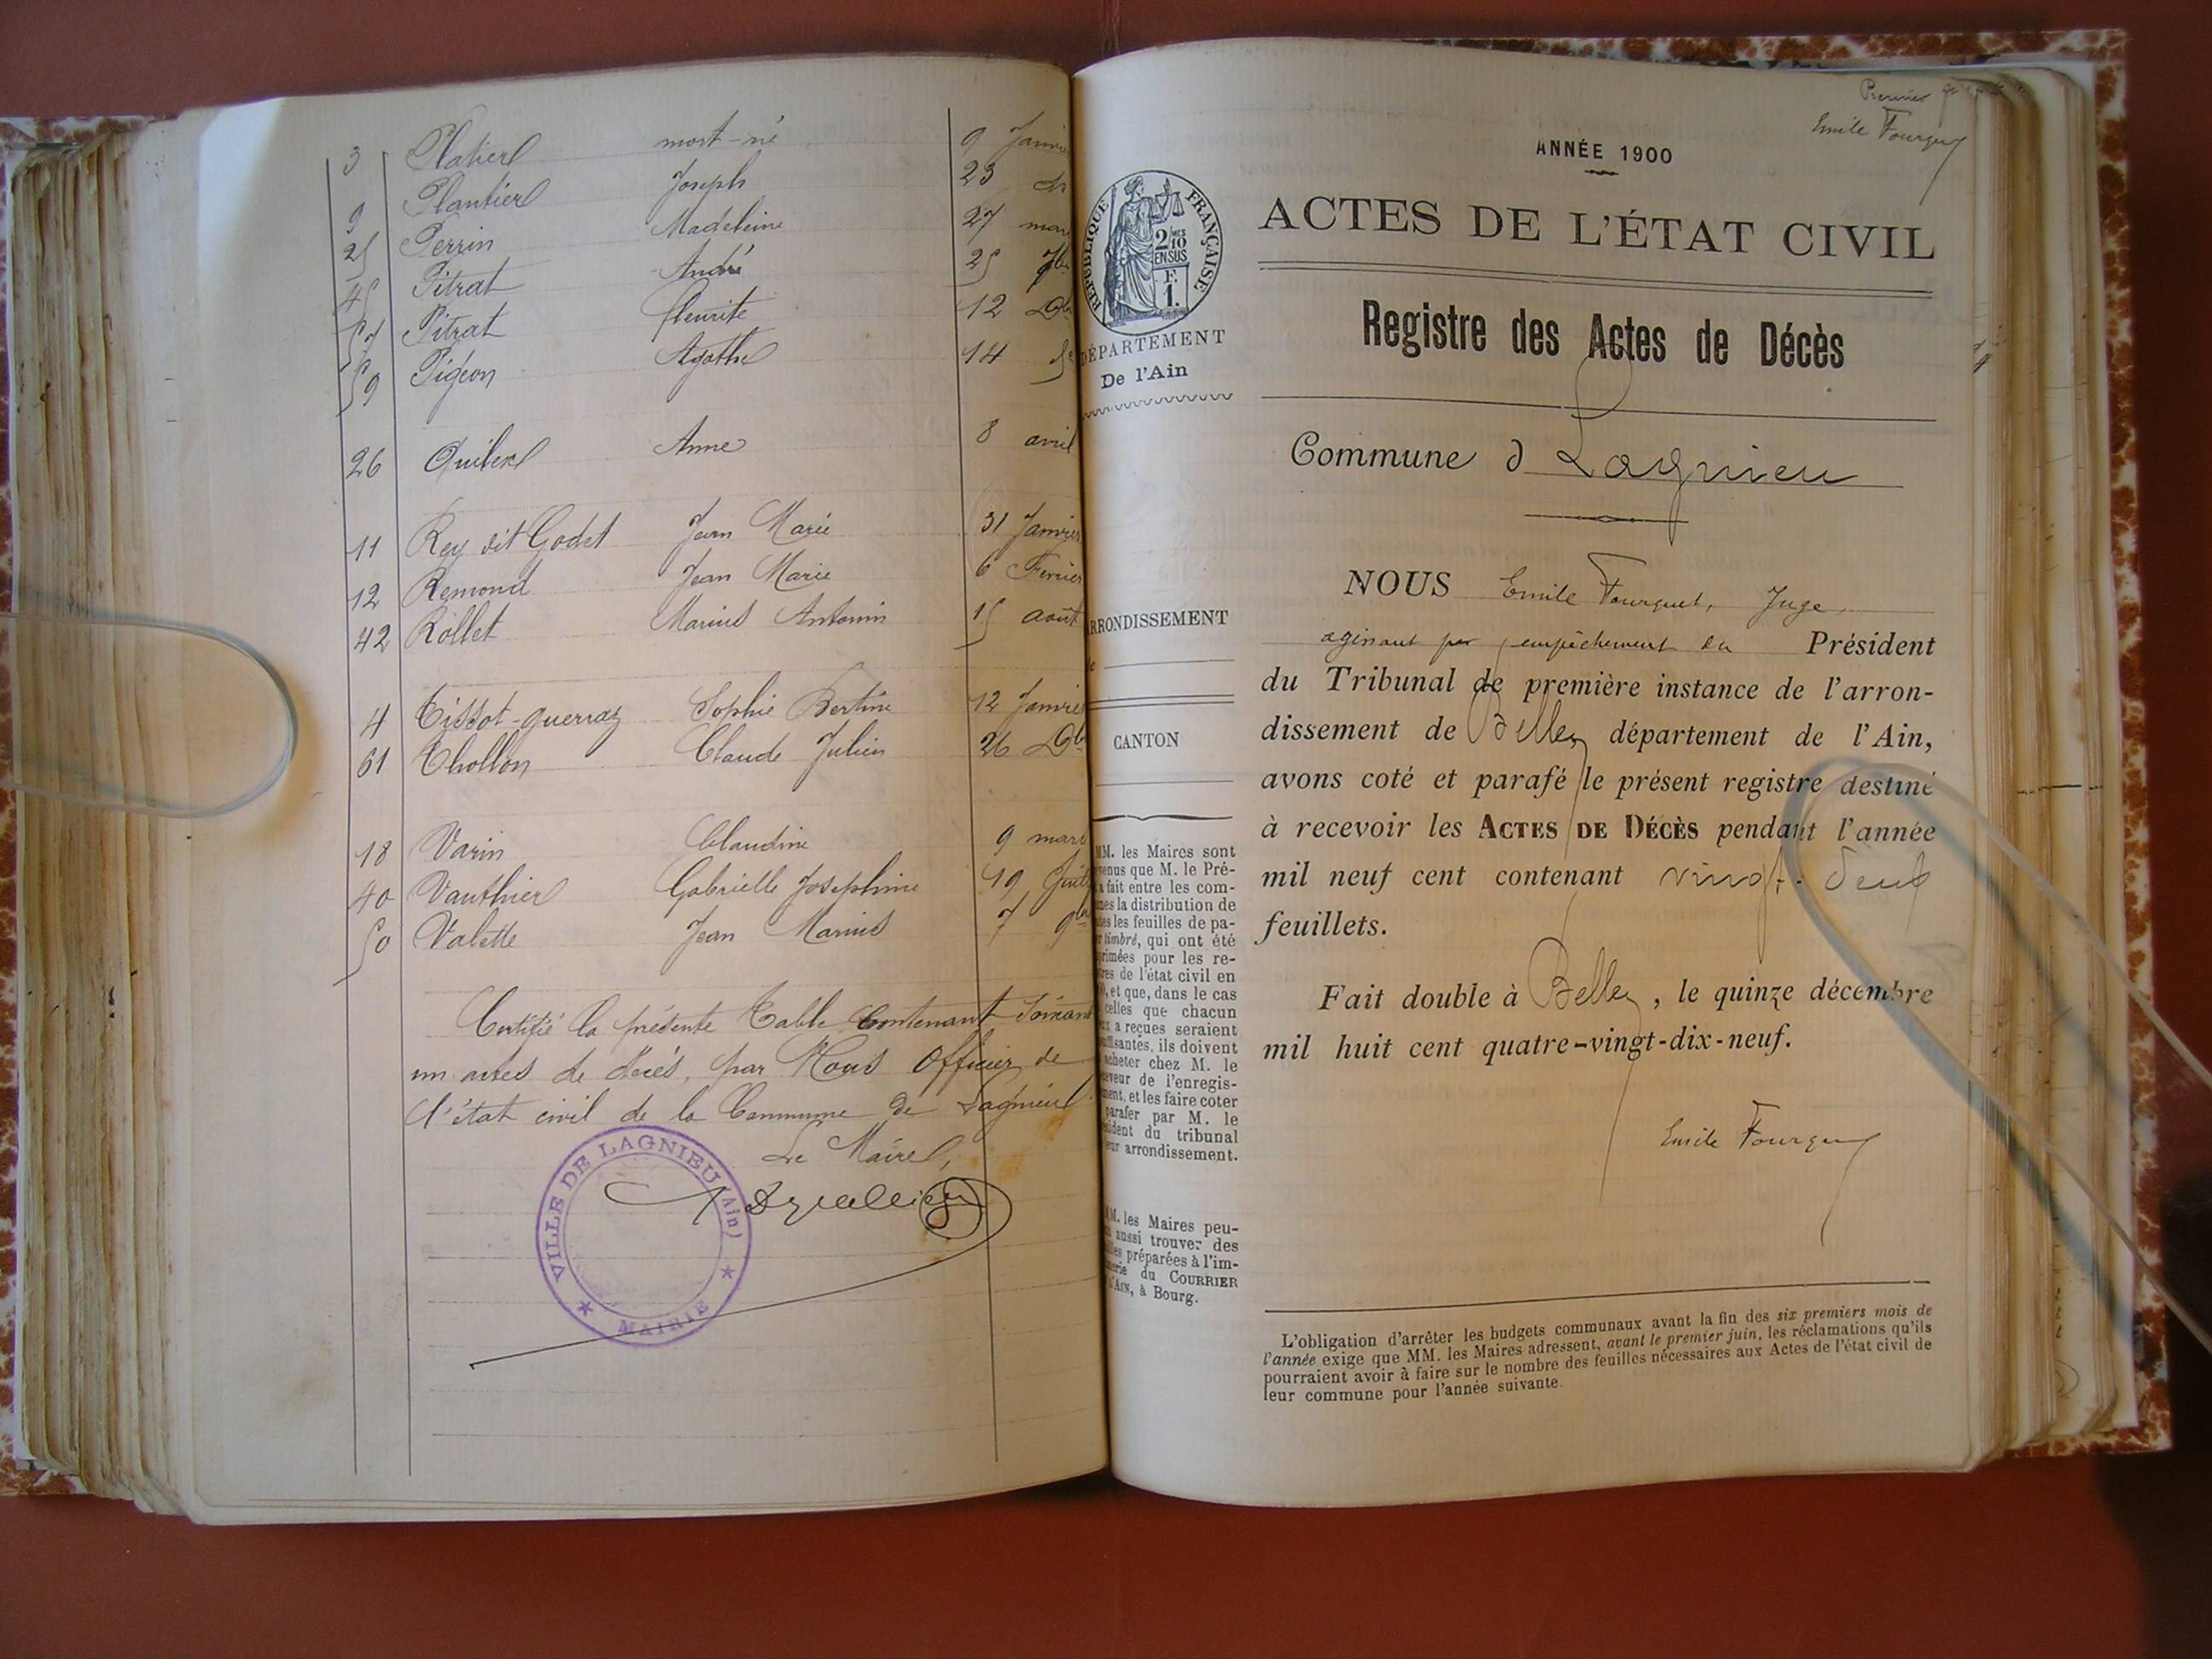 3 Platier mort-né 9 Janvie
9 Plantier Joseph 23 d
25 Perrin Madeleine 27 mar
45 Pitrat André 25 7b
57 Pitrat fleurite 12 Db
59 Pigeon Agathe 14
26 Quiberl Anne 8 avril
11 Rey dit Godet Jean Marie 31 Janvier
12 Remond Jean Marie 6 Fevrier
42 Rollet Marius Antonin 15 août
4 Tissot-guerraz Sophie Bertine 12 Janvie
61 Thollon Claude Julien 26 Db
18 Varin Claudine 9 mars
40 Vauthier Gabrielle Josephine 19 Juil
50 Valette Jean Marius 7 9b
Certifié la présente Table contenant soixante
un actes de décès, par Nous Officier de
l'état civil de la Commune de Lagnieu
Le Maire,
VILLE DE LAGNIEU (Ain)
* MAIRIE *
Premier
Emile Fourquet
ANNÉE 1900
ACTES DE L'ÉTAT CIVIL
RÉPUBLIQUE FRANÇAISE
2 MES 10
EN SUS
F.
1.
DÉPARTEMENT
De l'Ain
Registre des Actes de Décès
Commune d Lagnieu
NOUS Emile Fourquet, Juge
agissant par empêchement du Président
du Tribunal de première instance de l'arron-
dissement de Belley département de l'Ain,
avons coté et parafé le présent registre destiné
à recevoir les ACTES DE DÉCÈS pendant l'année
mil neuf cent contenant vingt-deux
feuillets.
Fait double à Belley, le quinze décembre
mil huit cent quatre-vingt-dix-neuf.
Emile Fourquet
RRONDISSEMENT
CANTON
MM. les Maires sont
venus que M. le Pré-
a fait entre les com-
nes la distribution de
es les feuilles de pa-
r timbré, qui ont été
primées pour les re-
tres de l'état civil en
, et que, dans le cas
celles que chacun
ux a reçues seraient
uffisantes, ils doivent
acheter chez M. le
ceveur de l'enregis-
ment, et les faire coter
parafer par M. le
sident du tribunal
leur arrondissement.
M. les Maires peu-
t aussi trouver des
les préparées à l'im-
merie du COURRIER
l'AIN, à Bourg.
L'obligation d'arrêter les budgets communaux avant la fin des six premiers mois de
l'année exige que MM. les Maires adressent, avant le premier juin, les réclamations qu'ils
pourraient avoir à faire sur le nombre des feuilles nécessaires aux Actes de l'état civil de
leur commune pour l'année suivante.